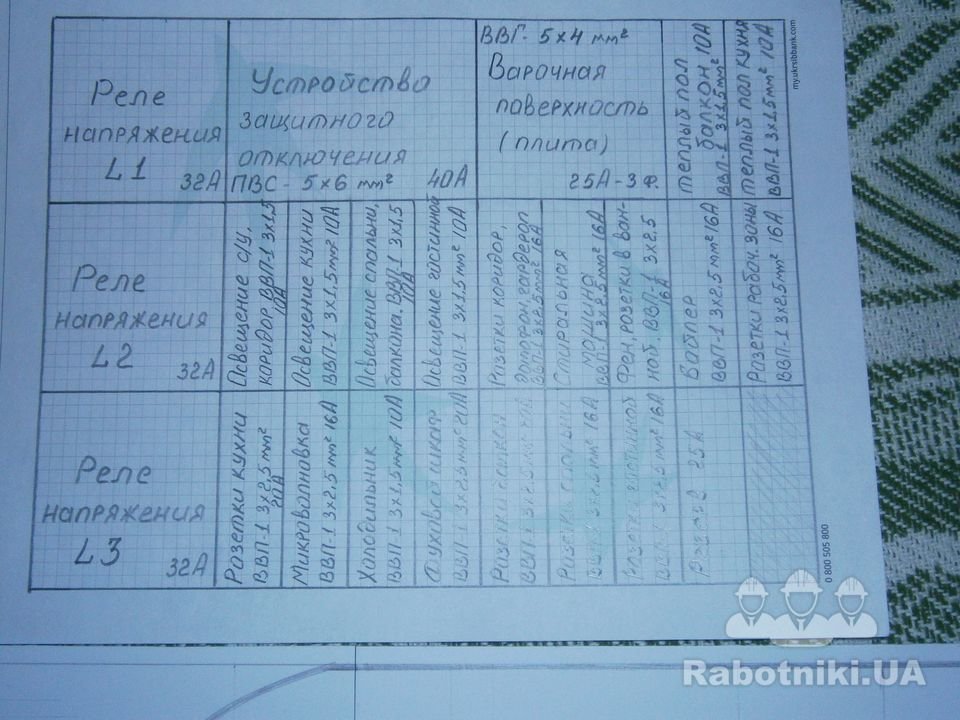 Реле
напряжения
L1
32А
Устройство
защитного
отключения
ПВС - 5х6 mm² 40А
ВВГ- 5х4 mm²
Варочная
поверхность
(плита)
25А-3ф.
Теплый пол
балкон
ВВП-1 3х1.5mm² 10А
Теплый пол кухня
ВВП-1 3х1.5mm² 10А
Реле
напряжения
L2
32А
Освещение с/у,
коридор ВВП-1 3х1,5
10А
Освещение кухни
ВВП-1 3х1,5mm² 10А
Освещение спальни,
балкона. ВВП-1 3х1,5
10А
Освещение гостинной
ВВП-1 3х1.5mm² 10А
Розетки коридор,
домофон, гардероп
ВВП-1 3х2.5mm² 16А
Стиральная
машина
ВВП-1 3х2.5mm² 16А
Фен, розетки в ван-
ной. ВВП-1 3х2.5
16А
Бойлер
ВВП-1 3х2.5mm² 16А
Розетки рабоч. зоны
ВВП-1 3х2.5mm² 16А
Реле
напряжения
L3
32А
Розетки кухни
ВВП-1 3х2.5mm²
Микроволновка
ВВП-1 3х2.5mm² 16А
Холодильник
ВВП-1 3х1,5mm² 10А
Духовой шкаф
ВВП-1 3х2.5mm²
Розетки
ВВП-1 3х2.5mm²
Розетки спальни
3х2.5mm² 16А
Розетки
3х2.5mm² 16А
25А
my.ukrsibbank.com
0 800 505 800
Rabotniki.UA